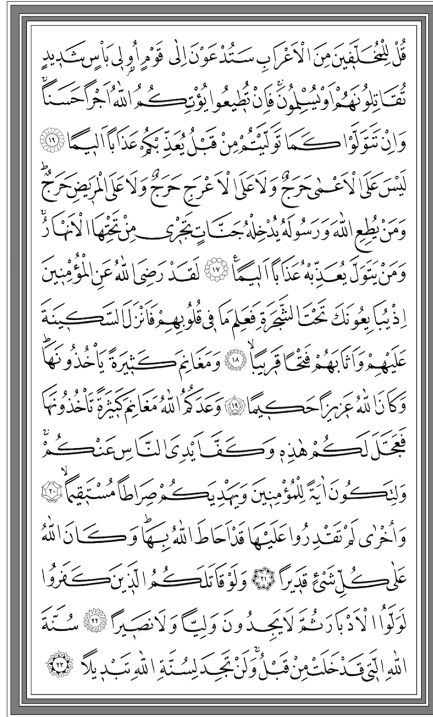 قُلْ لِلْمُخَلَّفٖينَ مِنَ الْاَعْرَابِ سَتُدْعَوْنَ اِلٰى قَوْمٍ اُو۬لٖى بَاْسٍ شَدٖيدٍ
تُقَاتِلُونَهُمْ اَوْ يُسْلِمُونَۚ فَاِنْ تُطٖيعُوا يُؤْتِكُمُ اللّٰهُ اَجْرًا حَسَنًاۚ
وَاِنْ تَتَوَلَّوْا كَمَا تَوَلَّيْتُمْ مِنْ قَبْلُ يُعَذِّبْكُمْ عَذَابًا اَلٖيمًا ﴿١٦﴾
لَيْسَ عَلَى الْاَعْمٰى حَرَجٌ وَلَا عَلَى الْاَعْرَجِ حَرَجٌ وَلَا عَلَى الْمَرٖيضِ حَرَجٌۜ
وَمَنْ يُطِعِ اللّٰهَ وَرَسُولَهُ يُدْخِلْهُ جَنَّاتٍ تَجْرٖى مِنْ تَحْتِهَا الْاَنْهَارُۚ
وَمَنْ يَتَوَلَّ يُعَذِّبْهُ عَذَابًا اَلٖيمًا۟ ﴿١٧﴾ لَقَدْ رَضِىَ اللّٰهُ عَنِ الْمُؤْمِنٖينَ
اِذْ يُبَايِعُونَكَ تَحْتَ الشَّجَرَةِ فَعَلِمَ مَا فٖى قُلُوبِهِمْ فَاَنْزَلَ السَّكٖينَةَ
عَلَيْهِمْ وَاَثَابَهُمْ فَتْحًا قَرٖيبًاۙ ﴿١٨﴾ وَمَغَانِمَ كَثٖيرَةً يَاْخُذُونَهَاۜ
وَكَانَ اللّٰهُ عَزٖيزًا حَكٖيمًا ﴿١٩﴾ وَعَدَكُمُ اللّٰهُ مَغَانِمَ كَثٖيرَةً تَاْخُذُونَهَا
فَعَجَّلَ لَكُمْ هٰذِهٖ وَكَفَّ اَيْدِىَ النَّاسِ عَنْكُمْۚ
وَلِتَكُونَ اٰيَةً لِلْمُؤْمِنٖينَ وَيَهْدِيَكُمْ صِرَاطًا مُسْتَقٖيمًاۙ ﴿٢٠﴾
وَاُخْرٰى لَمْ تَقْدِرُوا عَلَيْهَا قَدْ اَحَاطَ اللّٰهُ بِهَاۜ وَكَانَ اللّٰهُ
عَلٰى كُلِّ شَىْءٍ قَدٖيرًا ﴿٢١﴾ وَلَوْ قَاتَلَكُمُ الَّذٖينَ كَفَرُوا
لَوَلَّوُا الْاَدْبَارَ ثُمَّ لَا يَجِدُونَ وَلِيًّا وَلَا نَصٖيرًا ﴿٢٢﴾ سُنَّةَ
اللّٰهِ الَّتٖى قَدْ خَلَتْ مِنْ قَبْلُۚ وَلَنْ تَجِدَ لِسُنَّةِ اللّٰهِ تَبْدٖيلًا ﴿٢٣﴾